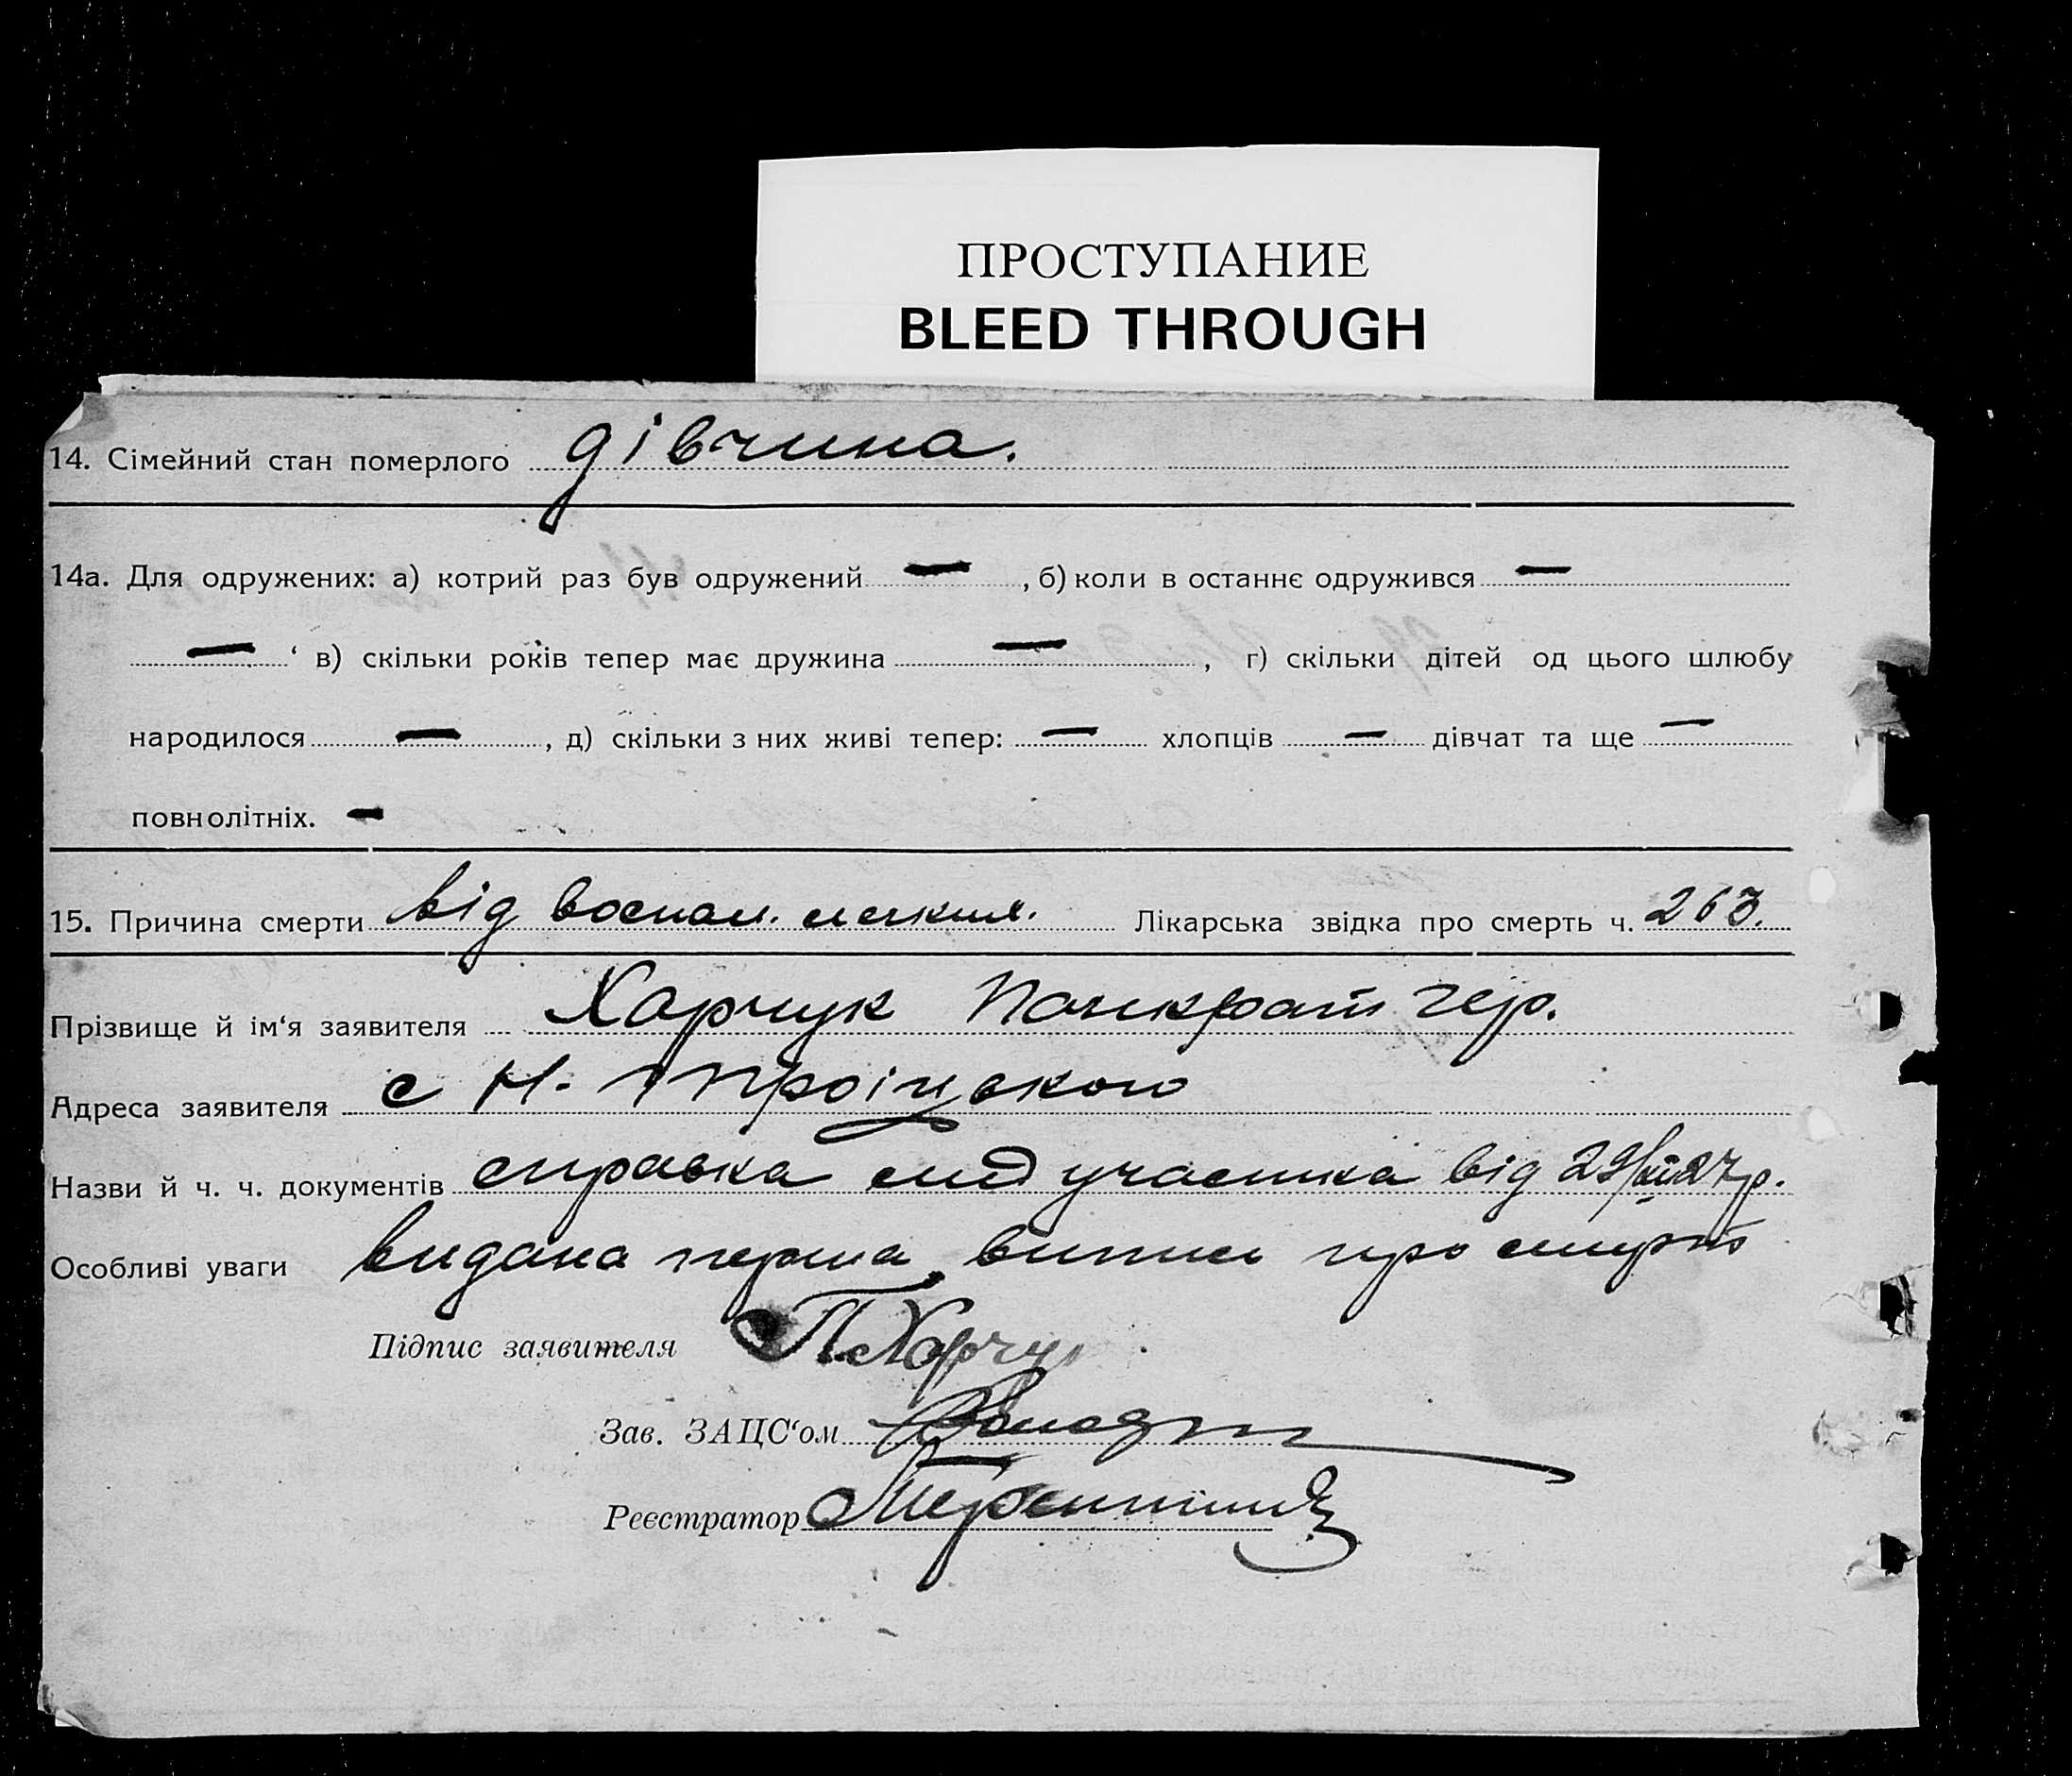 ПРОСТУПАНИЕ
BLEED THROUGH
14. Сімейний стан померлого дівчина.
14а. Для одружених: а) котрий раз був одружений — , б) коли в останнє одружився —
— ‘ в) скільки років тепер має дружина — , г) скільки дітей од цього шлюбу
народилося — , д) скільки з них живі тепер: — хлопців — дівчат та ще —
повнолітніх. —
15. Причина смерти від воспал. легких. Лікарська звідка про смерть ч. 263.
Прізвище й ім‘я заявителя Харчук Панкрат Гер.
Адреса заявителя с Н. Троіцького
Назви й ч. ч. документів справка мед участка від 29/XII 27р.
Особливі уваги видана перша випись про смерть
Підпис заявителя П. Харчук
Зав. ЗАЦС‘ом
Реєстратор